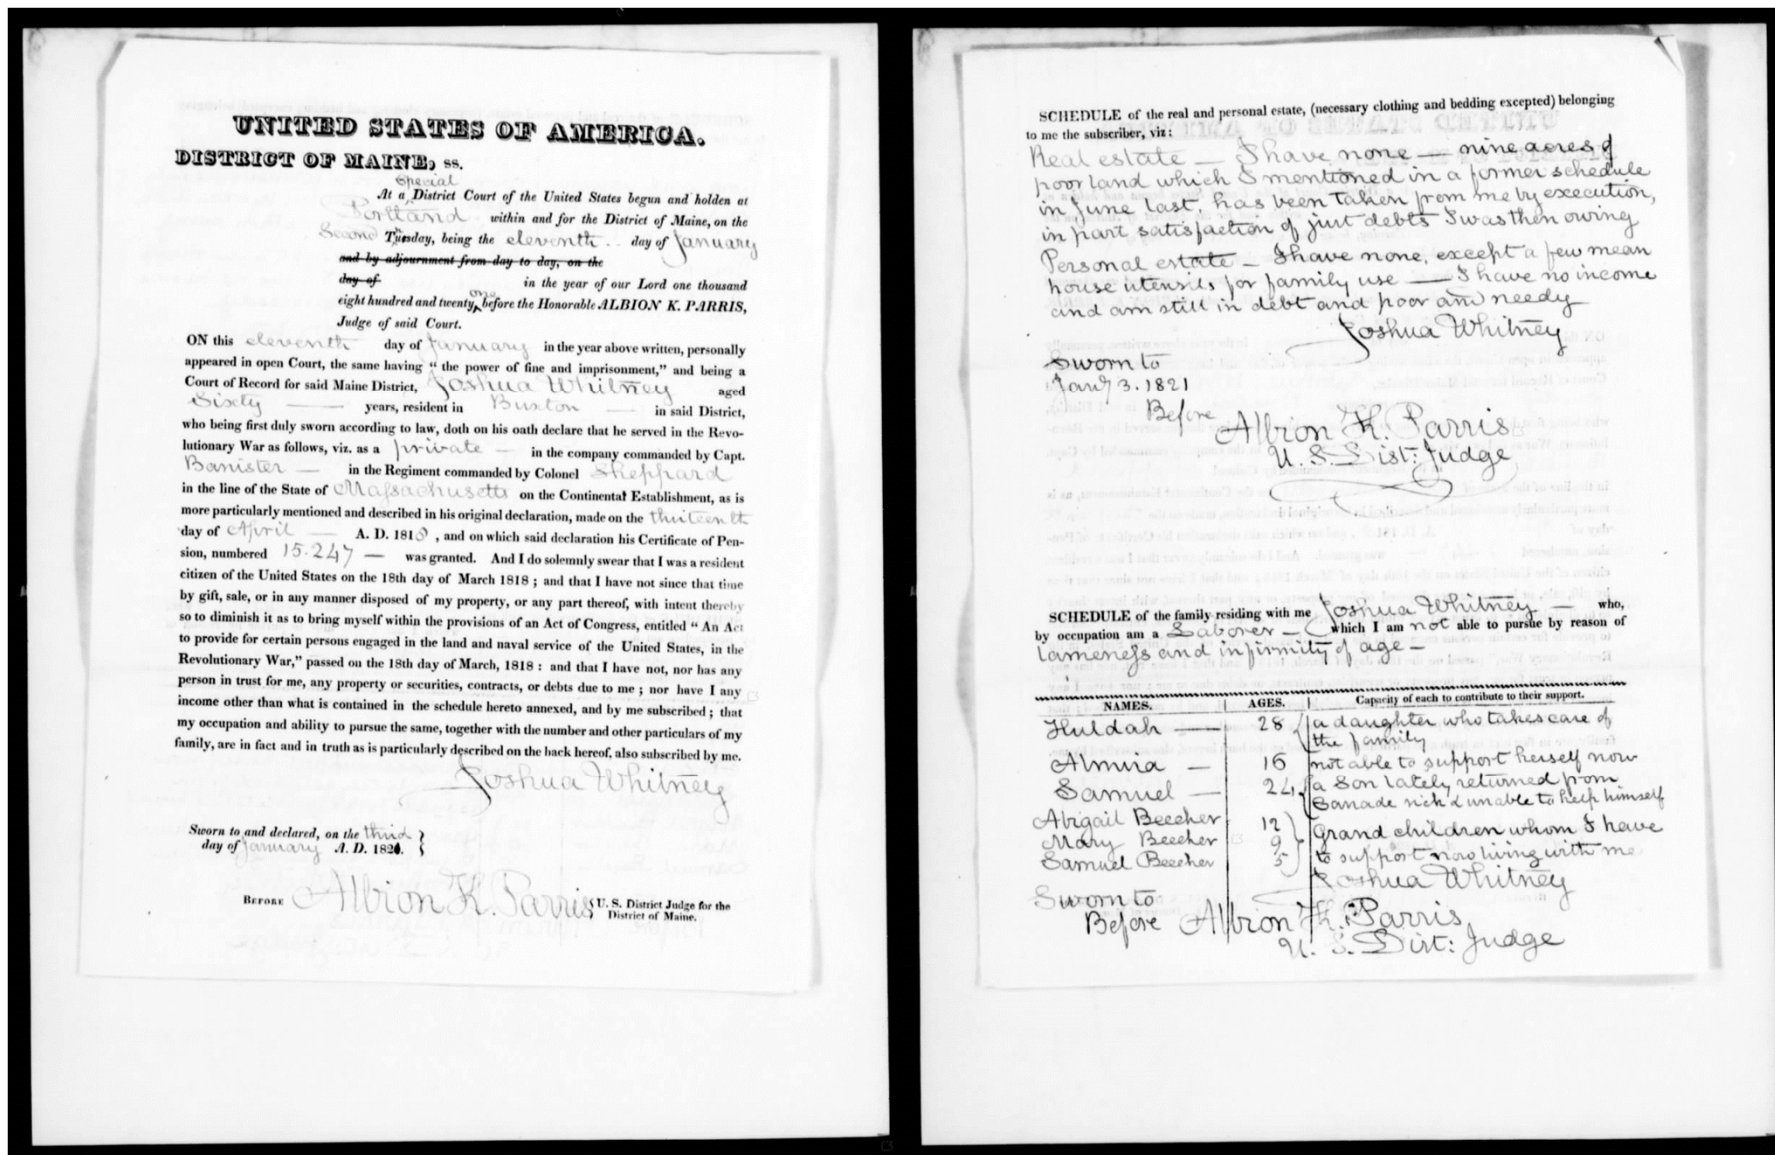 UNITED STATES OF AMERICA.
DISTRICT OF MAINE, ss.
Special
At a District Court of the United States begun and holden at
Portland within and for the District of Maine, on the
Second Tuesday, being the eleventh day of January
and by adjournment from day to day, on the
day of in the year of our Lord one thousand
one
eight hundred and twenty, before the Honorable ALBION K. PARRIS,
Judge of said Court.
ON this eleventh day of January in the year above written, personally
appeared in open Court, the same having "the power of fine and imprisonment," and being a
Court of Record for said Maine District, Joshua Whitney aged
Sixty years, resident in Buxton in said District,
who being first duly sworn according to law, doth on his oath declare that he served in the Revo-
lutionary War as follows, viz. as a private in the company commanded by Capt.
Banister in the Regiment commanded by Colonel Sheppard
in the line of the State of Massachusetts on the Continental Establishment, as is
more particularly mentioned and described in his original declaration, made on the thirteenth
day of April A. D. 1818, and on which said declaration his Certificate of Pen-
sion, numbered 15.247 was granted. And I do solemnly swear that I was a resident
citizen of the United States on the 18th day of March 1818 ; and that I have not since that time
by gift, sale, or in any manner disposed of my property, or any part thereof, with intent thereby
so to diminish it as to bring myself within the provisions of an Act of Congress, entitled "An Act
to provide for certain persons engaged in the land and naval service of the United States, in the
Revolutionary War," passed on the 18th day of March, 1818 : and that I have not, nor has any
person in trust for me, any property or securities, contracts, or debts due to me ; nor have I any
income other than what is contained in the schedule hereto annexed, and by me subscribed ; that
my occupation and ability to pursue the same, together with the number and other particulars of my
family, are in fact and in truth as is particularly described on the back hereof, also subscribed by me.
Joshua Whitney
Sworn to and declared, on the third
day of January A. D. 1821.
BEFORE Albion K. Parris U. S. District Judge for the
District of Maine.
SCHEDULE of the real and personal estate, (necessary clothing and bedding excepted) belonging
to me the subscriber, viz:
Real estate — I have none — nine acres of
poor land which I mentioned in a former schedule
in June last, has been taken from me by execution,
in part satisfaction of just debts I was then owing
Personal estate — I have none, except a few mean
house utensils for family use — I have no income
and am still in debt and poor and needy
Joshua Whitney
Sworn to
Jany 3. 1821
Before
Albion K. Parris
U. S. Dist: Judge
SCHEDULE of the family residing with me Joshua Whitney — who,
by occupation am a Laborer — which I am not able to pursue by reason of
lameness and infirmity of age —
NAMES. AGES. Capacity of each to contribute to their support.
Huldah — 28 a daughter who takes care of
the family
Almira — 16 not able to support herself now
Samuel — 24 a Son lately returned from
Canade sick & unable to help himself
Abigail Beecher 12
Mary Beecher 9 Grand children whom I have
Samuel Beecher 5 to support now living with me
Joshua Whitney
Sworn to
Before Albion K. Parris
U. S. Dist: Judge